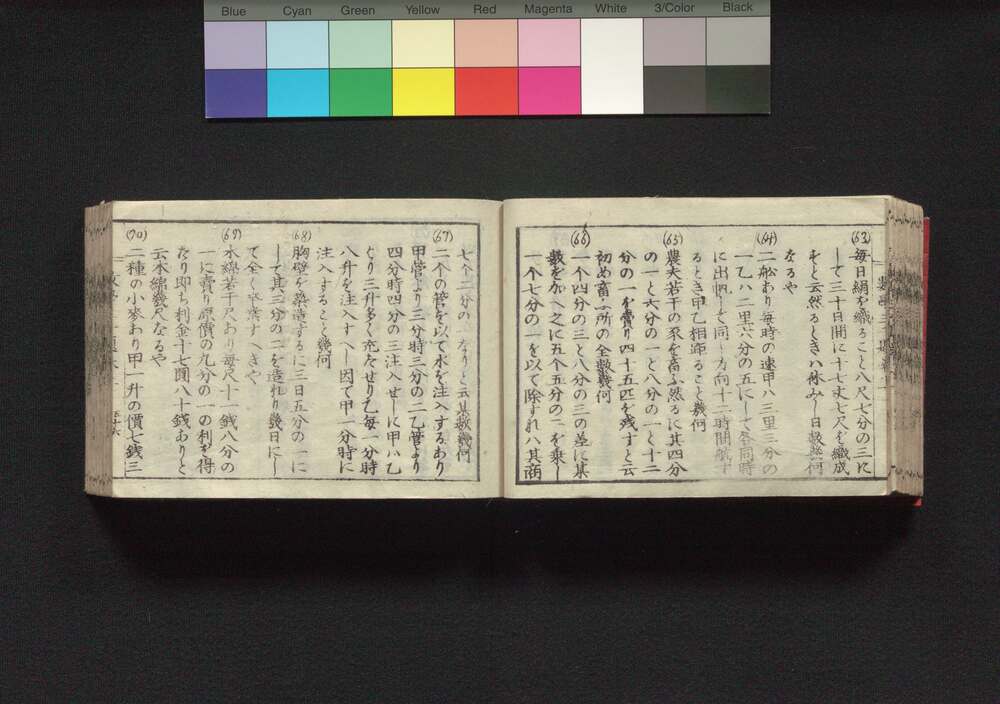 Blue Cyan Green Yellow Red Magenta White 3/Color Black
(63)
毎日絹を織ること八尺七分の三に
して三十日間に十七丈七尺を織成
せりと云然るときハ休みし日数幾何
なるや
(64)
二舩あり毎時の速甲ハ三里三分の
一乙ハ二里六分の五にして各同時
に出帆して同し方向十二時間航す
るとき甲乙相距ること幾何
(65)
農夫若干の豕を畜ふ然るに其四分
の一と六分の一と八分の一と十二
分の一を賣り四十五匹を残すと云
初め畜ふ所の全数幾何
(66)
一个四分の三と八分の三の差に某
数を加へ之に五个五分の二を乗し
一个七分の一を以て除すれハ其商
七个二分の なりと云其数幾何
(67)
二个の管を以て水を注入するあり
甲管より三分時三分の二乙管より
四分時四分の三注入せしに甲ハ乙
より三升多く充たせり乙毎一分時
八升を注入すへし因て甲一分時に
注入すること幾何
(68)
胸壁を築造するに三日五分の一に
して其三分の二を造れり幾日にし
て全く卒業すへきや
(69)
木綿若干尺あり毎尺十一銭八分の
一に賣り原價の九分の一の利を得
たり即ち利金十七圓八十銭ありと
云木綿幾尺なるや
(70)
二種の小麥あり甲一升の價七銭三